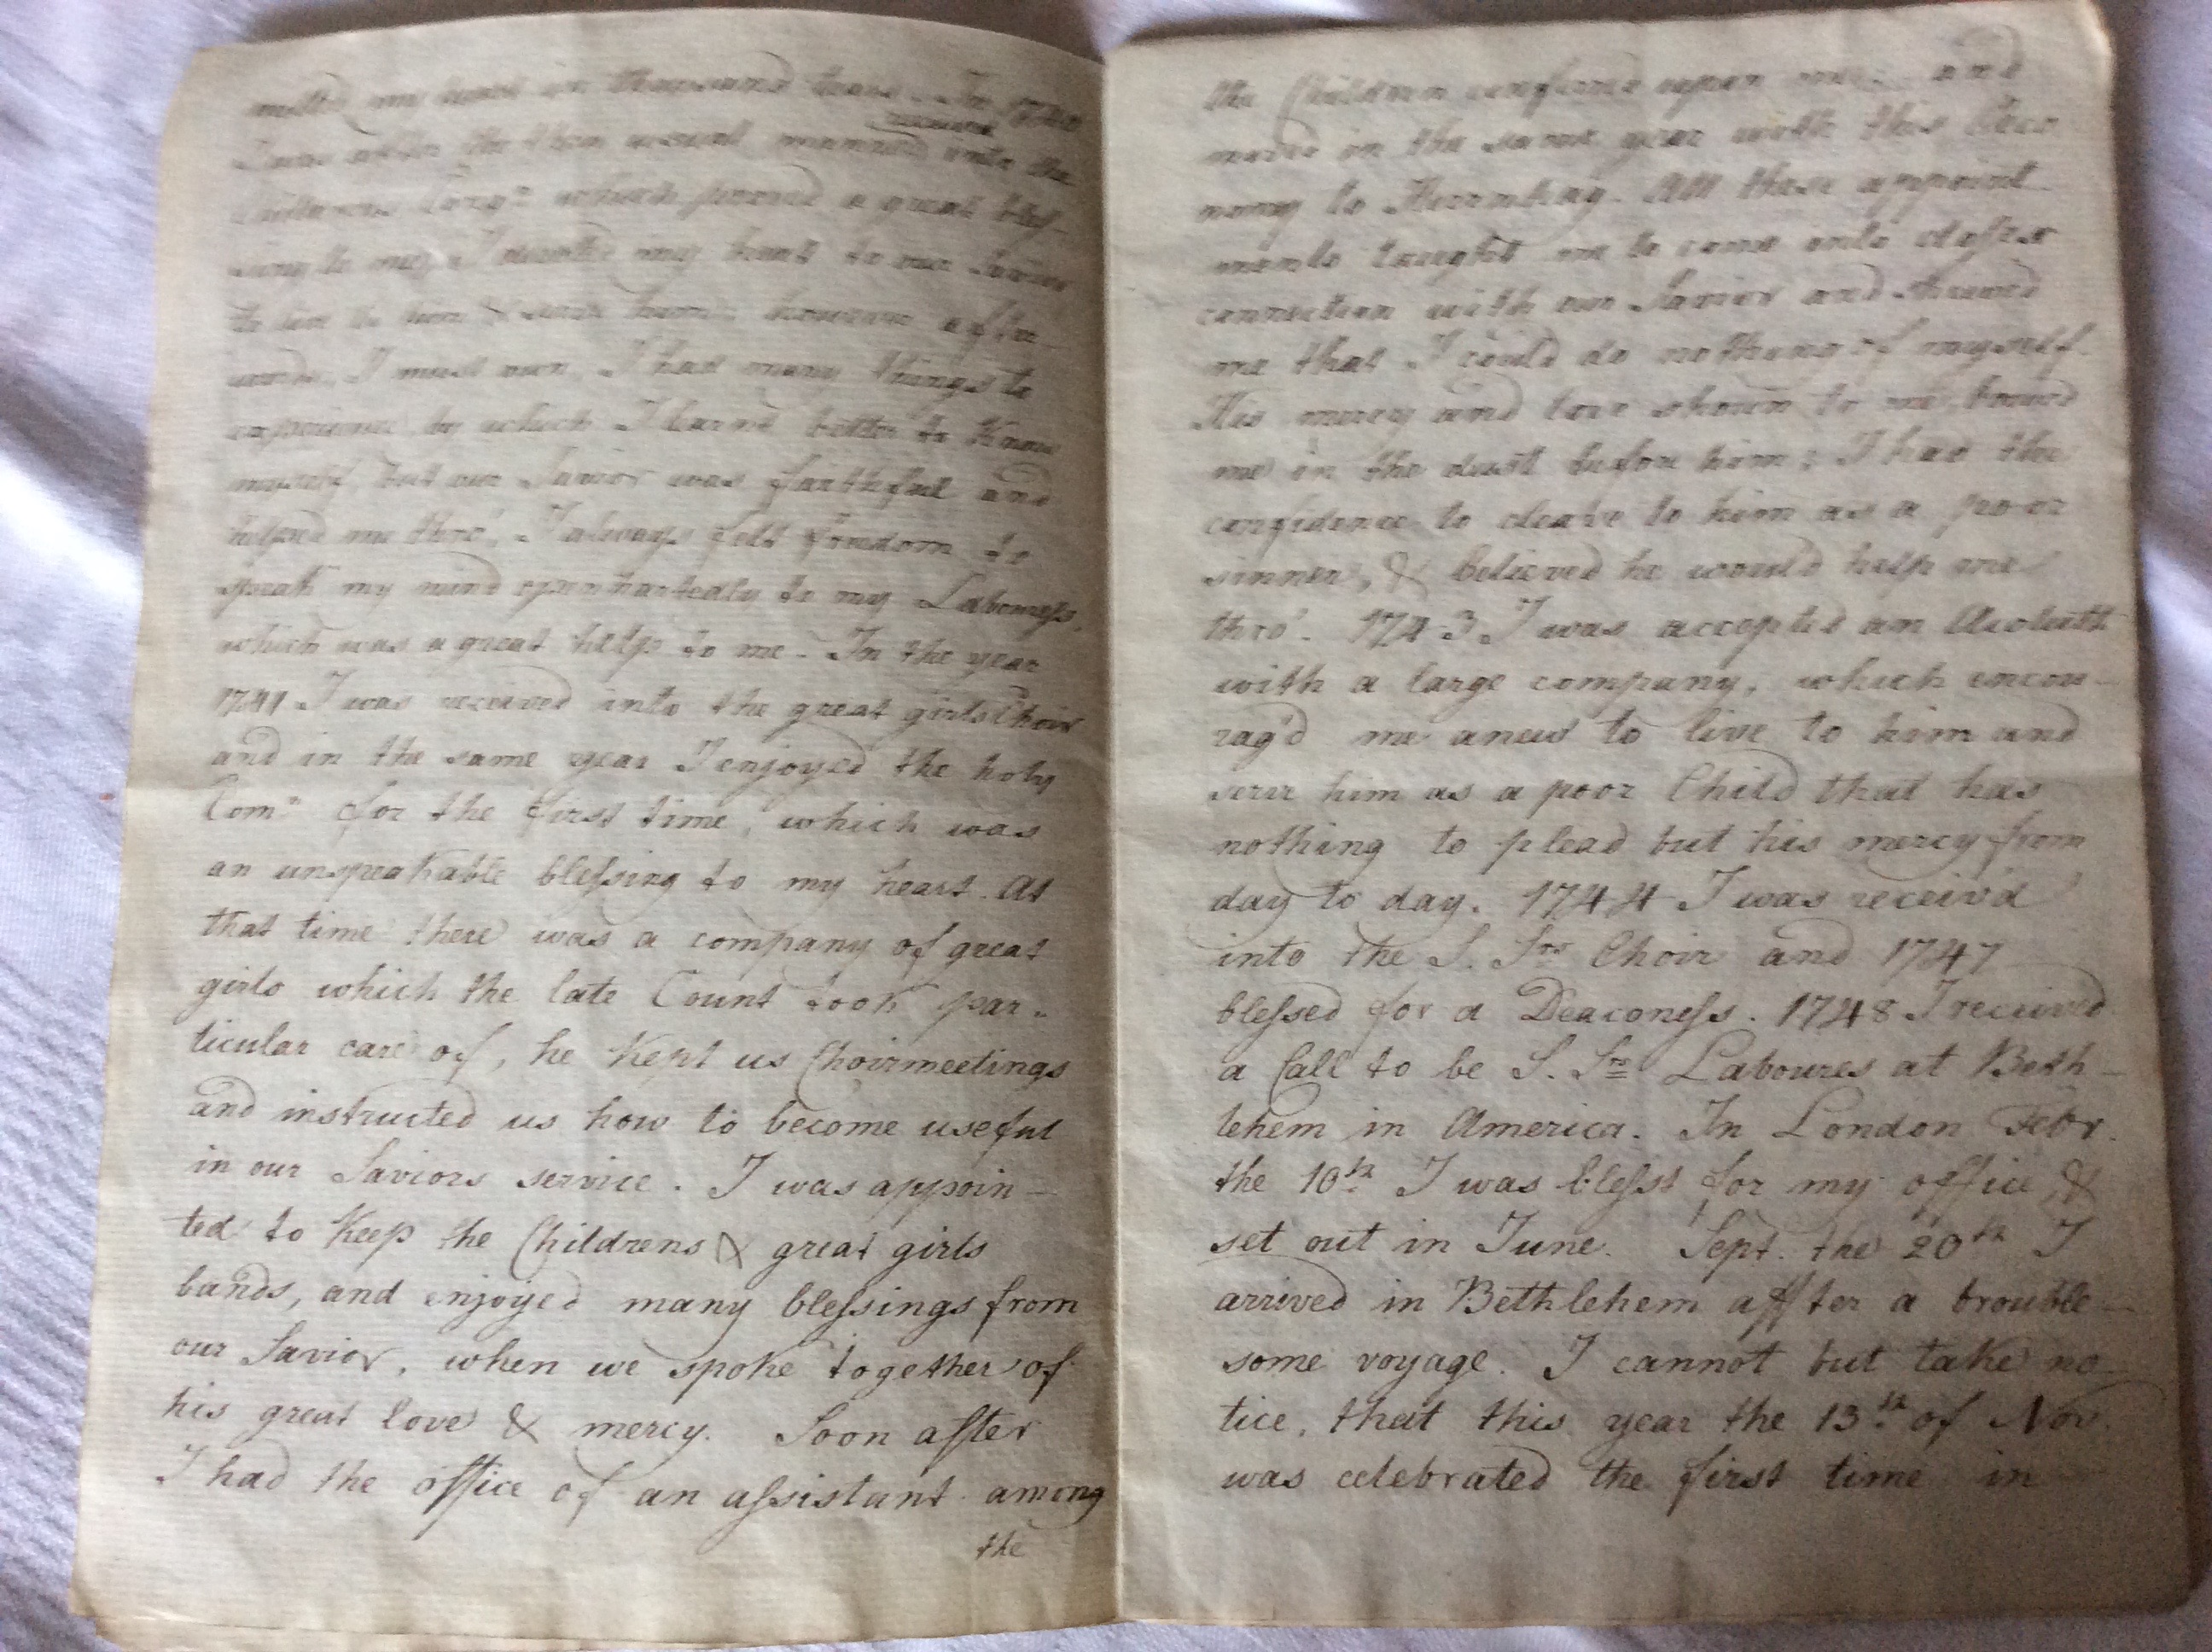 melted my heart in thousand tears. In 1740
I was after the then usual manner received into the
Childrens Congn which proved a great bles-
sing to me, I devoted my heart to our Savior
to live to him & serve him; however after-
wards, I must own, I had many things to
experience by which I learnd better to Know
myself, but our Savior was faithful and
helped me thro'. I always felt freedom to
speak my mind openhartedly to my Labouress,
which was a great help to me. In the year
1741 I was received into the great girls Choir
and in the same year I enjoyed the holy
Comn for the first time, which was
an unspeakable blessing to my heart. At
that time there was a company of great
girls which the late Count took par-
ticular care of, he Kept us Choirmeetings
and instructed us how to become useful
in our Saviors service. I was appoin-
ted to Keep the Childrens & great girls
bands, and enjoyed many blessings from
our Savior, when we spoke together of
his great love & mercy. Soon after
I had the office of an assistant among
the
the Children conferred upon me and
moved in the same year with this Oeco
nomy to Herrnhaag. All these appoint
ments taught me to come into closer
connection with our Savior and shewed
me that I could do nothing of myself.
His mercy and love shown to me bowed
me in the dust before him; I had the
confidence to cleave to him as a poor
sinner, & believed he would help me
thro'. 1743 I was accepted an Acoluth
with a large company, which encou-
rag'd me anew to live to him and
serve him as a poor Child that has
nothing to plead but his mercy from
day to day. 1744 I was receiv'd
into the S. Srs Choir and 1747
blessed for a Deaconess. 1748 I received
a Call to be S. Srs Laboures at Beth-
lehem in America. In London Febr.
the 10th I was blesst for my office, &
set out in June. Sept. the 20th I
arrived in Bethlehem affter a trouble-
some voyage. I cannot but take no
tice, that this year the 13th of Nov
was celebrated the first time in